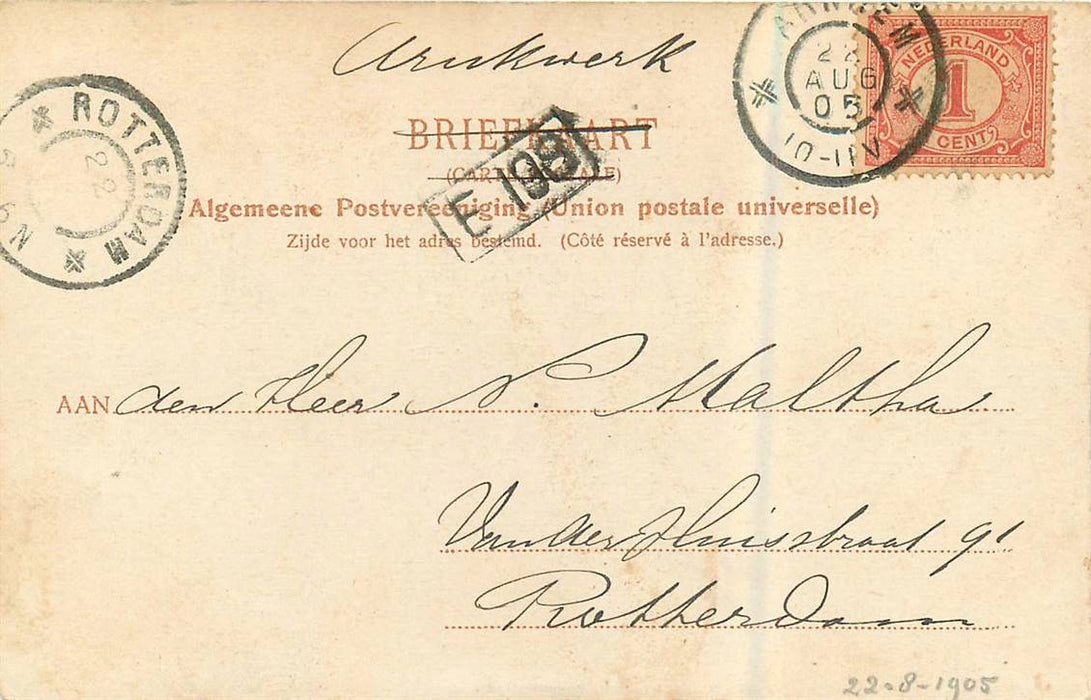 Drukwerk
BRIEFKAART
(CARTE POSTALE)
Algemeene Postvereeniging (Union postale universelle)
Zijde voor het adres bestemd. (Côté réservé à l'adresse.)
E 198
ROTTERDAM
22
5
N
ARNHEM
22
AUG
05
10-11V
NEDERLAND
1
CENT
AAN den Heer N. Maltha
Van der 91
Rotterdam
22-8-1905